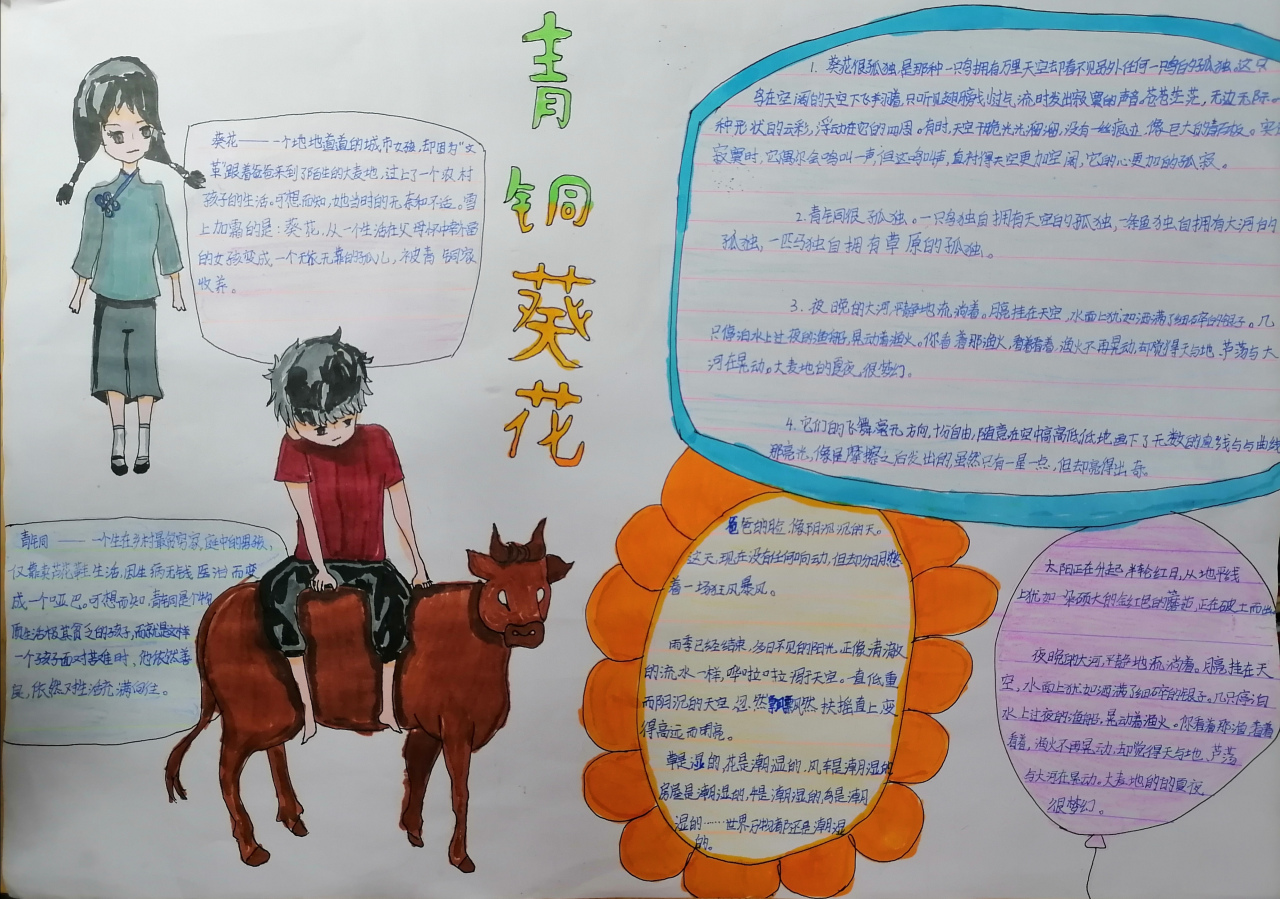 青
铜
葵
花
葵花——一个地地道道的城市女孩,却因为“文
革”跟着爸爸来到了陌生的大麦地,过上了一个农村
孩子的生活。可想而知,她当时的无亲和不适。雪
上加霜的是:葵花,从一个生活在父母怀中
的女孩变成一个无依无靠的孤儿,被青铜家
收养。
青铜——一个生在乡村最贫穷家庭中的男孩,
仅靠卖芦花鞋生活,因生病无钱医治而变
成一个哑巴。可想而知,青铜是个物
质生活极其贫乏的孩子,而就是这样
一个孩子面对苦难时,他依然善
良,依然对生活充满向往。
1. 葵花很孤独,是那种一只鸟拥有万里天空却看不见另外任何一只鸟的孤独。这只
鸟在空阔的天空下飞翔着,只听见翅膀划过气流时发出寂寞的声音。苍苍茫茫,无边无际。
种形状的云彩,浮动在它的四周。有时,天空干脆光光溜溜,没有一丝痕迹,像巨大的青石板。实
寂寞时,它偶尔会鸣叫一声,但这鸣叫声,直衬得天空更加空阔,它的心更加的孤寂。
2.青铜很孤独。一只鸟独自拥有天空的孤独,一条鱼独自拥有大河的
孤独,一匹马独自拥有草原的孤独。
3.夜晚的大河,平静地流淌着。月亮挂在天空,水面上犹如洒满了细碎的银子。几
只停泊水上过夜的渔船,晃动着渔火。你看着那渔火,看着看着,渔火不再晃动,却觉得天与地、芦荡与大
河在晃动。大麦地的夏夜,很梦幻。
4.它们的飞舞毫无方向,十分自由,随意在空中高高低低地画下了无数的直线与与曲线
那亮光,像是摩擦之后发出的,虽然只有一星一点,但却亮得出奇。
爸爸的脸,像阴沉沉的天。
这天,现在没有任何响动,但却分明憋
着一场狂风暴风。
雨季已经结束,多日不见的阳光,正像清澈
的流水一样,哗啦啦泻于天空。一直低重
而阴沉的天空,忽然飘然扶摇直上,变
得高远而明亮。
草是湿的,花是潮湿的,风车是潮湿的,
房屋是潮湿的,牛是潮湿的,鸟是潮
湿的……世界万物都还是潮湿
的。
太阳正在升起,半轮红日,从地平线
上犹如一朵硕大的金红色的蘑菇,正在破土而出
夜晚的大河,平静地流淌着。月亮挂在天
空,水面上犹如洒满了细碎的银子。几只停泊
水上过夜的渔船,晃动着渔火。你看着那渔,看着
看着,渔火不再晃动,却觉得天与地、芦荡
与大河在晃动。大麦地的的夏夜,
很梦幻。